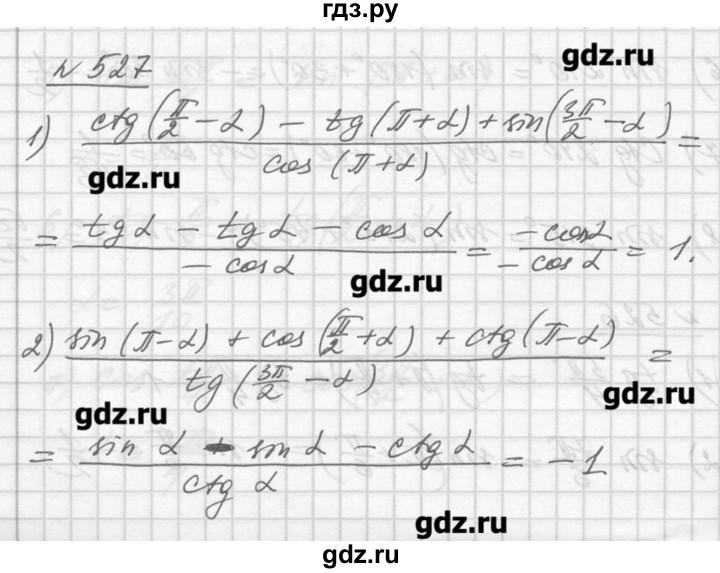 гдз.ру
gdz.ru
№ 527
1) (ctg(π/2 − α) − tg(π+α) + sin(3π/2 − α)) / cos(π+α) =
gdz.ru
= (tgα − tgα − cosα) / (−cosα) = −cosα / −cosα = 1.
gdz.ru
2) (sin(π−α) + cos(π/2+α) + ctg(π−α)) / tg(3π/2 − α) =
gdz.ru
gdz.ru
= (sinα − sinα − ctgα) / ctgα = −1
gdz.ru
gdz.ru